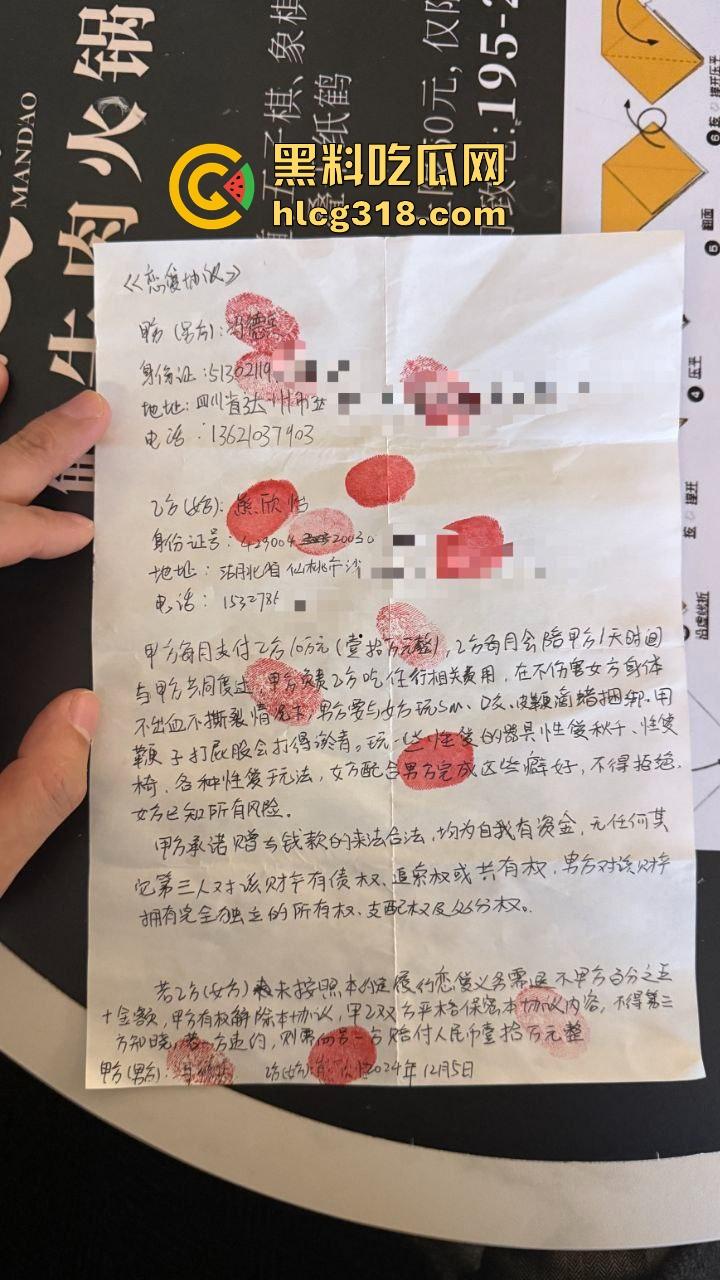 MANDAO
牛肉火锅
五子棋、象棋
纸鹤
黑料吃瓜网
hlcg318.com
《恋爱协议》
甲方(男方):
身份证:
地址:
电话:
乙方(女方):
身份证号:
地址:
电话:
甲方每月支付乙方10万元(壹拾万元整),乙方每月会陪甲方1天时间
与甲方共同度过,甲方负责乙方吃住行相关费用,在不伤害女方身体
不出血不撕裂情况下,男方要与女方玩sm、口交、皮鞭滴蜡捆绑、用
鞭子打屁股会打得淤青。玩一些性爱的器具性爱秋千、性爱
椅、各种性爱玩法,女方配合男方完成这些癖好,不得拒绝,
女方已知所有风险。
甲方承诺赠与钱款的来法合法,均为自我有资金,无任何其
它第三人对该财产有债权、追索权或共有权,男方对该财产
拥有完全独立的所有权、支配权及处分权。
若乙方(女方)未按照本约定履行恋爱义务需退还甲方百分之五
十金额,甲方有权解除本协议,甲乙双方严格保密本协议内容,不得第三
方知晓,若一方违约,则需向另一方赔付人民币壹拾万元整
甲方(男方): 乙方(女方): 2024年12月5日